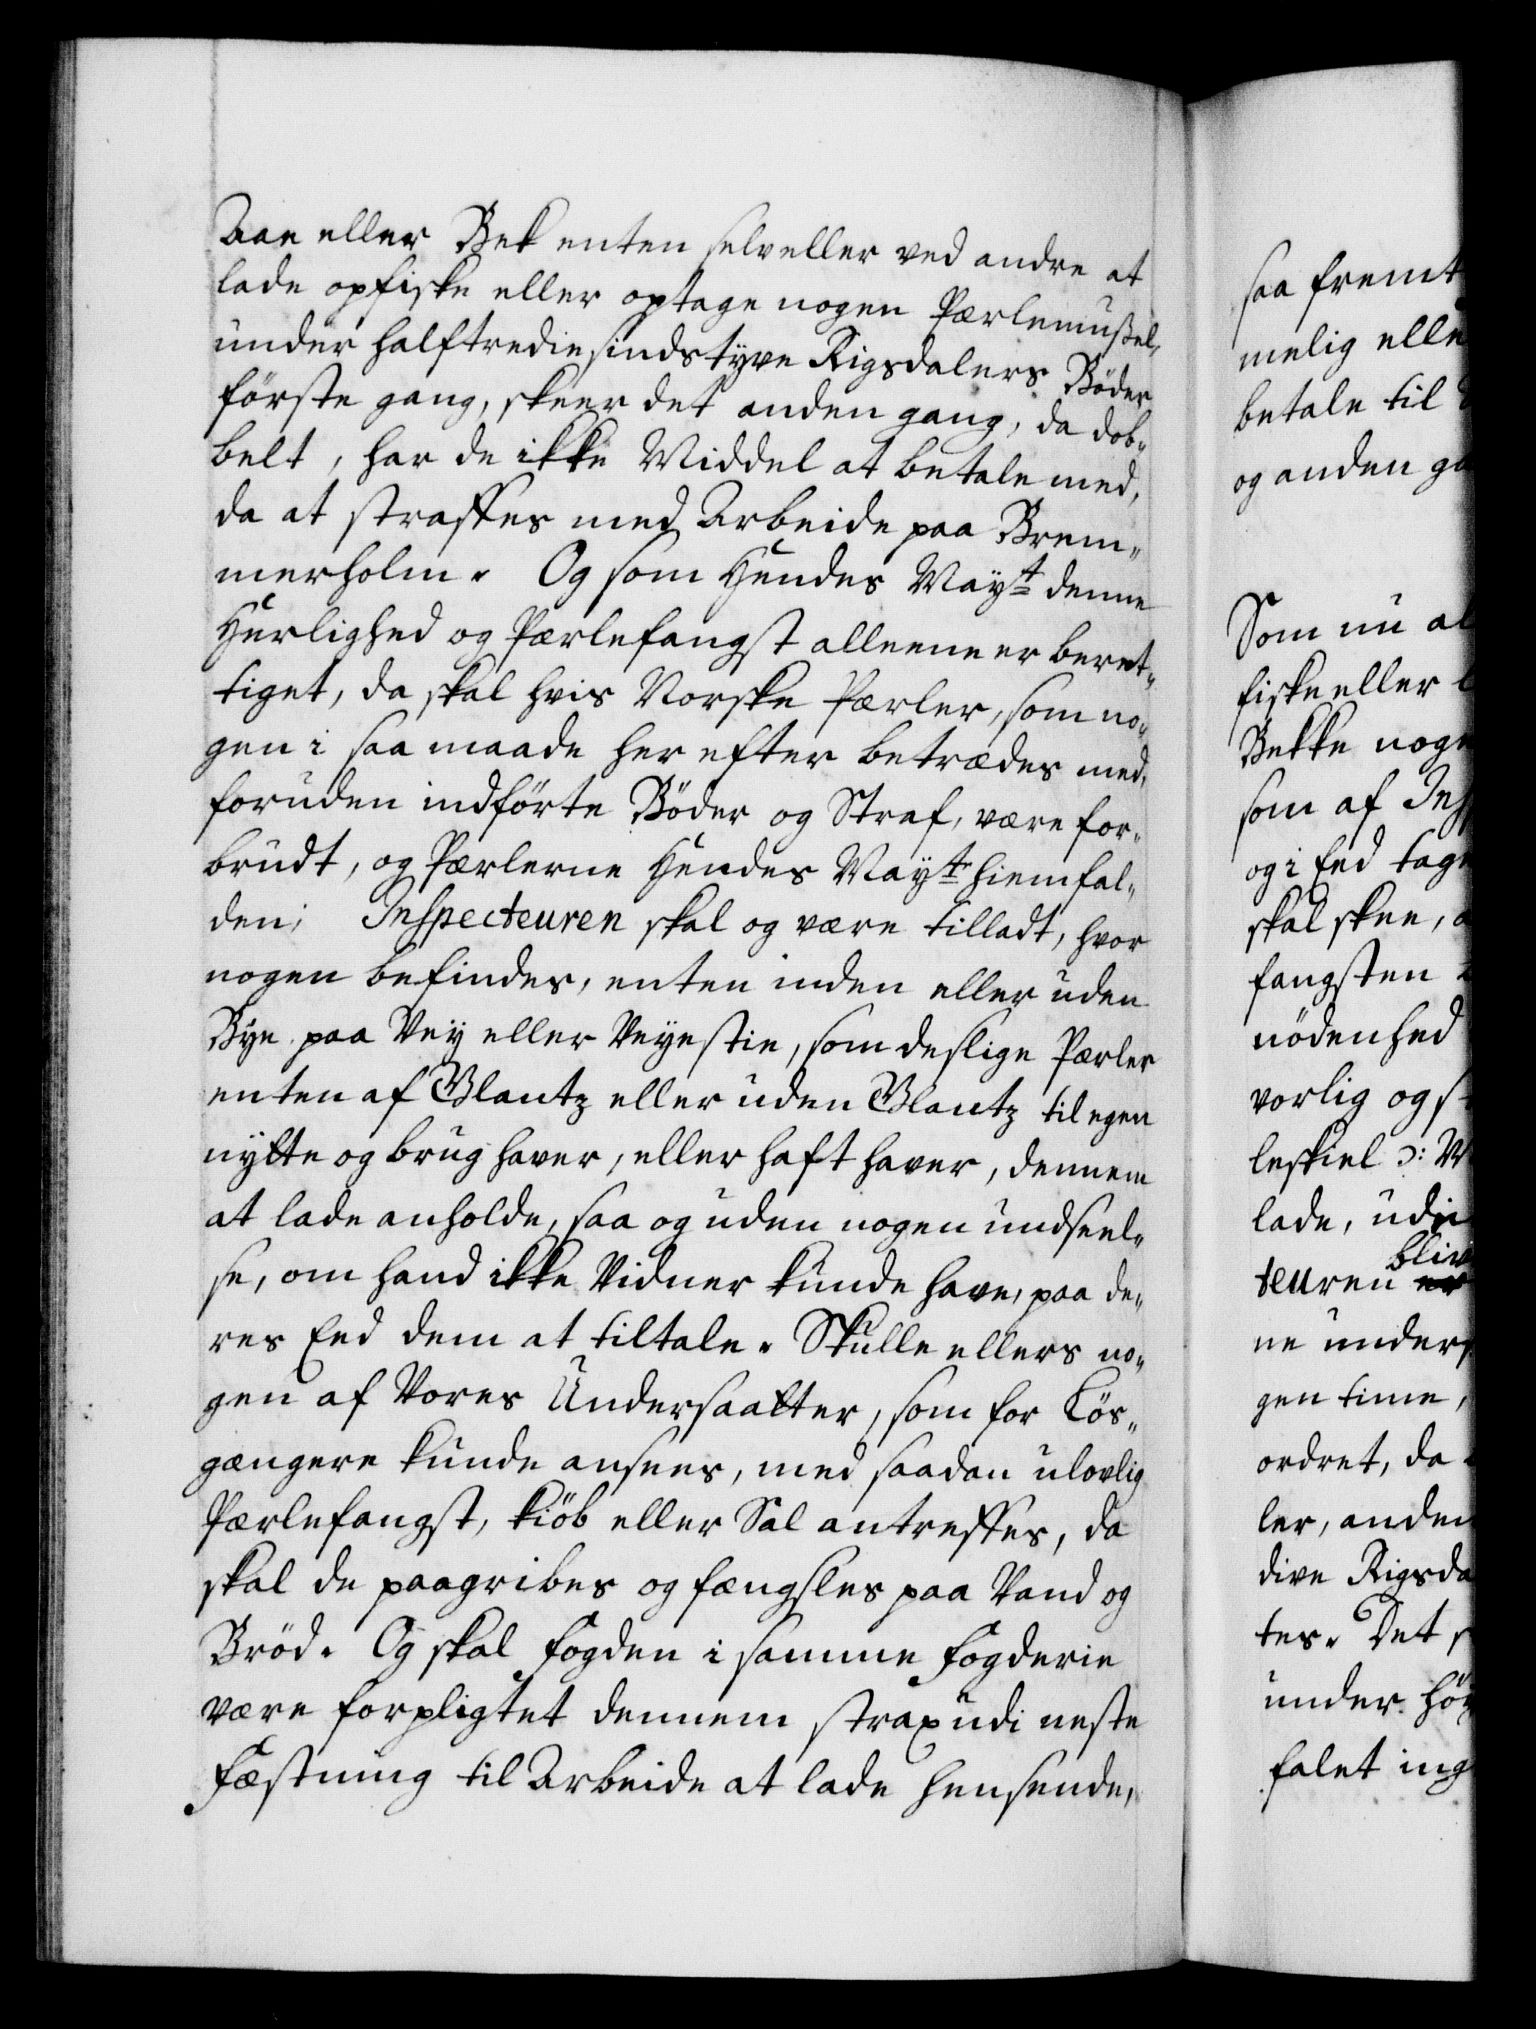 Aae eller Bek enten selv eller ved andre at
lade opfiske eller optage nogen Pærlemußel,
under halftrediesindstyve Rigsdalers Böder
förste gang, skeer det anden gang, da dob„
belt, har de ikke Middel at betale med,
da at straffes med Arbeide paa Brem„
merholm. Og som Hendes Mayt denne
Herlighed og Pærlefangst alleene er beret„
tiget, da skal hvis Norske Pærler, som no„
gen i saa maade her efter betrædes med,
foruden indförte Böder og Straf, være for„
brudt, og Pærlerne Hendes Mayt hiemfal„
den; Inspecteuren skal og være tilladt, hvor
nogen befindes, enten inden eller uden
Bye paa Vey eller Veyestie, som deslige Pærler
enten af Glantz eller uden Glantz til egen
nytte og brug haver, eller haft haver, dennem
at lade anholde, saa og uden nogen undseel„
se, om hand ikke Vidner kunde have, paa de„
res Eed dem at tiltale. Skulle ellers no„
gen af Vores Undersaatter, som for Lös„
gængere kunde ansees, med saadan ulovlig
Pærlefangst, kiöb eller Sal antreffes, da
skal de paagribes og fængsles paa Vand og
Bröd. Og skal fogden i samme fogderie
være forpligtet dennem strax udi neste
Fæstning til Arbeide at lade hensende,
saa fremt
melig elle
betale til
og anden ga
Som nu al
fiske eller
Bekke noge
som af Insp
og i Eed tag
skal skee,
fangsten
nödenhed
vorlig og s
leskiel ɔ:
lade, udi
bliv
teuren er
ne unders
gen time,
ordret, da
ler, anden
dive Rigsda
tes. Det
under hög
falet ing